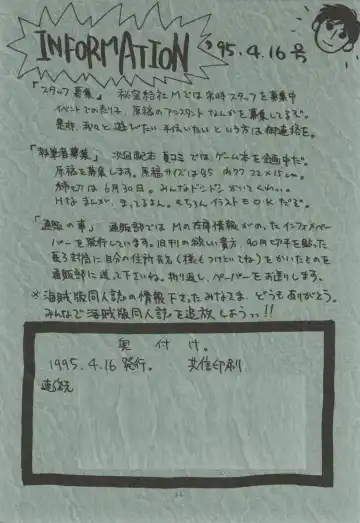 INFORMATION '95.4.16号
「スタッフ募集」 秘密結社Mでは常時スタッフを募集中
イベントでの売り子、原稿のアシスタントなんかを募集してるぞ。
是非、我々と遊びたい、手伝いたいという方は御連絡を。
「執筆者募集」 次回配本 夏コミでは、ゲーム本を企画中だ。
原稿を募集します。原稿サイズはB5 内ワク 22×15cm。
締切りは6月30日。みんなドンドンかいてくれい。
Hなまんが、まってるよん。もちろんイラストもOKだぞ。
「通販の事」 通販部ではMの在庫情報がのったインフォメペー
パーを発行しています。旧刊の欲しい貴方、90円切手を貼った
長3封筒に自分の住所氏名(様もつけといてね)をかいたものを
通販部に送って下さいね。折り返し、ペーパーをお送りします。
※海賊版同人誌の情報下さったみなさま、どうもありがとう。
みんなで海賊版同人誌を追放しようっ!!
奥付け。
1995.4.16発行。 共信印刷
連絡